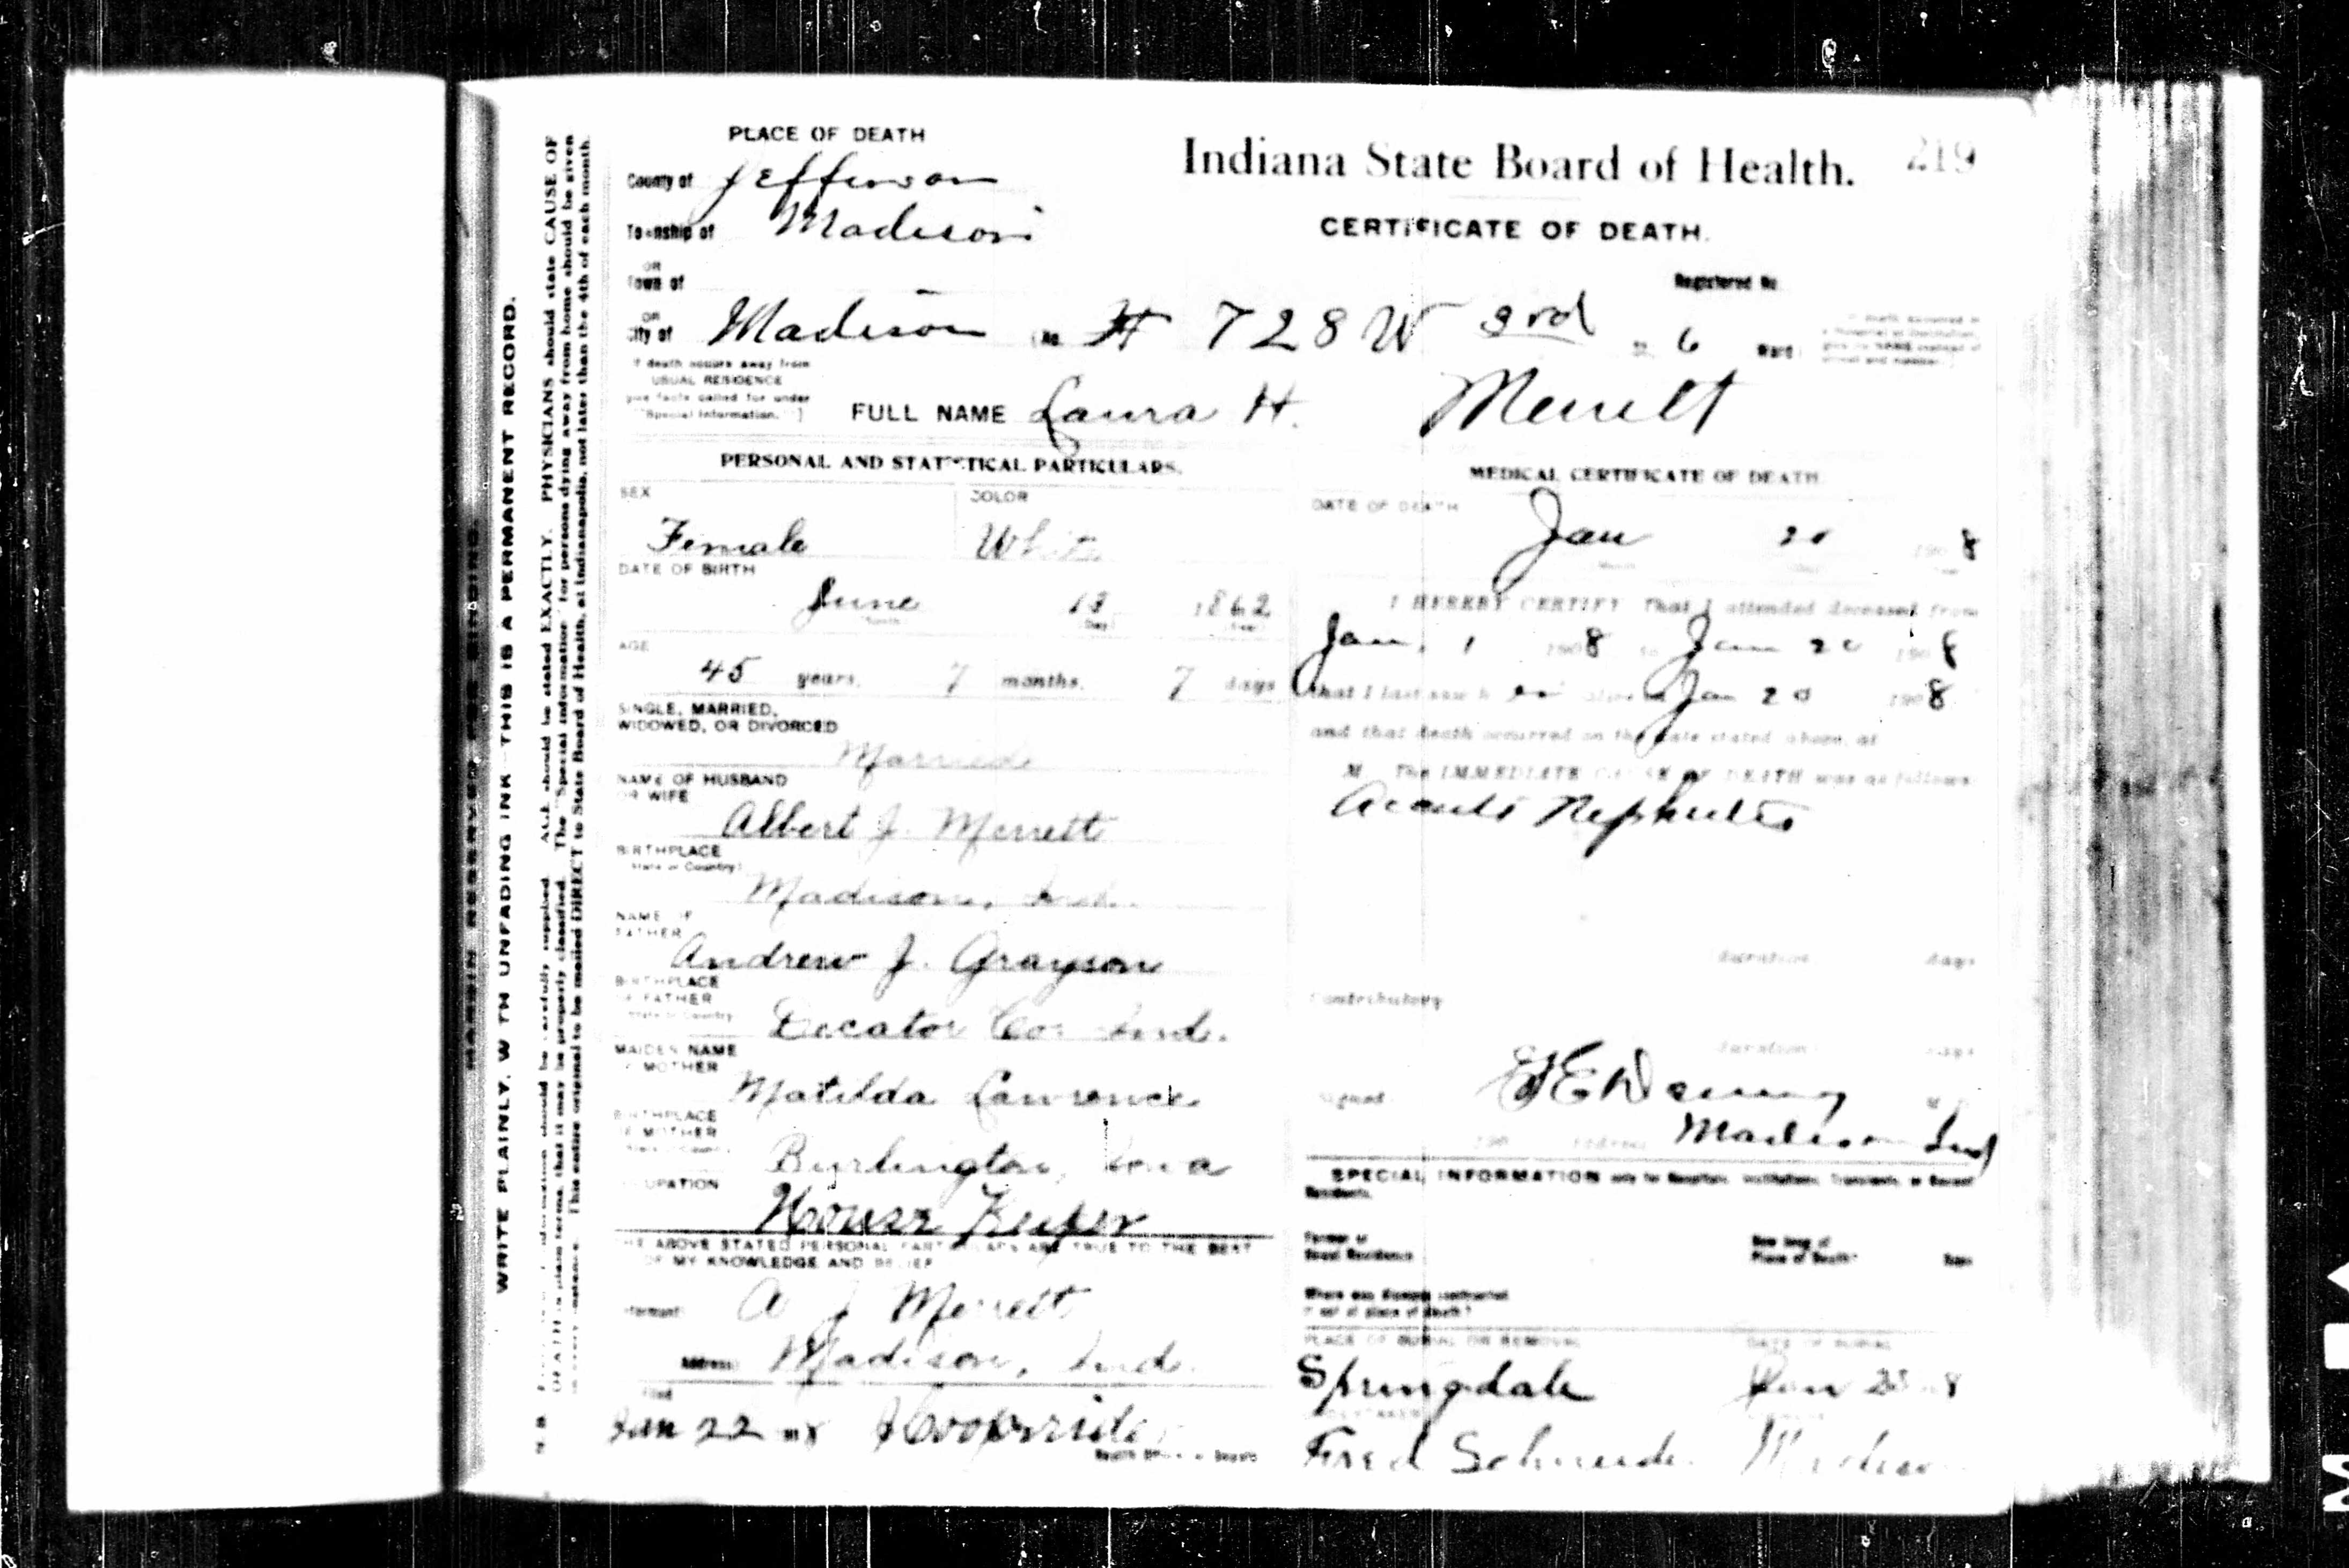 PLACE OF DEATH
County of Jefferson
Township of Madison
OR
Town of
OR
City of Madison (No. # 728 W 3rd St. 6 Ward)
Indiana State Board of Health. 219
CERTIFICATE OF DEATH.
Registered No
If death occurs away from
USUAL RESIDENCE
give facts called for under
"Special Information."]
FULL NAME Laura H. Merrett
PERSONAL AND STATISTICAL PARTICULARS.
SEX
Female
COLOR
White
DATE OF BIRTH
June 13 1862
Month Day Year
AGE
45 years, 7 months, 7 days
SINGLE, MARRIED,
WIDOWED, OR DIVORCED
Married
NAME OF HUSBAND
OR WIFE
Albert J. Merrett
BIRTHPLACE
(State or Country)
Madison, Ind.
NAME OF
FATHER
Andrew J. Grayson
BIRTHPLACE
OF FATHER
(State or Country)
Decator Co. Ind.
MAIDEN NAME
OF MOTHER
Matilda Lawrence
BIRTHPLACE
OF MOTHER
(State or Country)
Burlington, Iowa
OCCUPATION
House Keeper
THE ABOVE STATED PERSONAL PARTICULARS ARE TRUE TO THE BEST
OF MY KNOWLEDGE AND BELIEF
Informant A J Merrett
Address Madison, Ind.
Filed
Jan 22 1908
MEDICAL CERTIFICATE OF DEATH
DATE OF DEATH
Jan 20 1908
I HEREBY CERTIFY That I attended deceased from
Jan. 1 1908 to Jan 20 1908
that I last saw her alive on Jan 20 1908
and that death occurred on the date stated above, at
M. The IMMEDIATE CAUSE OF DEATH was as follows:
Acute Nephrites
duration days
Contributory
duration days
Signed M. D.
190 Address Madison Ind
SPECIAL INFORMATION only for Hospitals, Institutions, Transients, or Recent
Residents.
Former or
Usual Residence
How long at
Place of Death? Days
Where was disease contracted
if not at place of death?
PLACE OF BURIAL OR REMOVAL
Springdale
DATE OF BURIAL
Jan 8
UNDERTAKER
Fred Schneider Madison
MARGIN RESERVED FOR BINDING.
WRITE PLAINLY, WITH UNFADING INK—THIS IS A PERMANENT RECORD.
AGE should be stated EXACTLY. PHYSICIANS should state CAUSE OF
DEATH in plain terms, that it may be properly classified. The "Special information" for persons dying away from home should be given
This entire original to be mailed DIRECT to State Board of Health, at Indianapolis, not later than the 4th of each month.